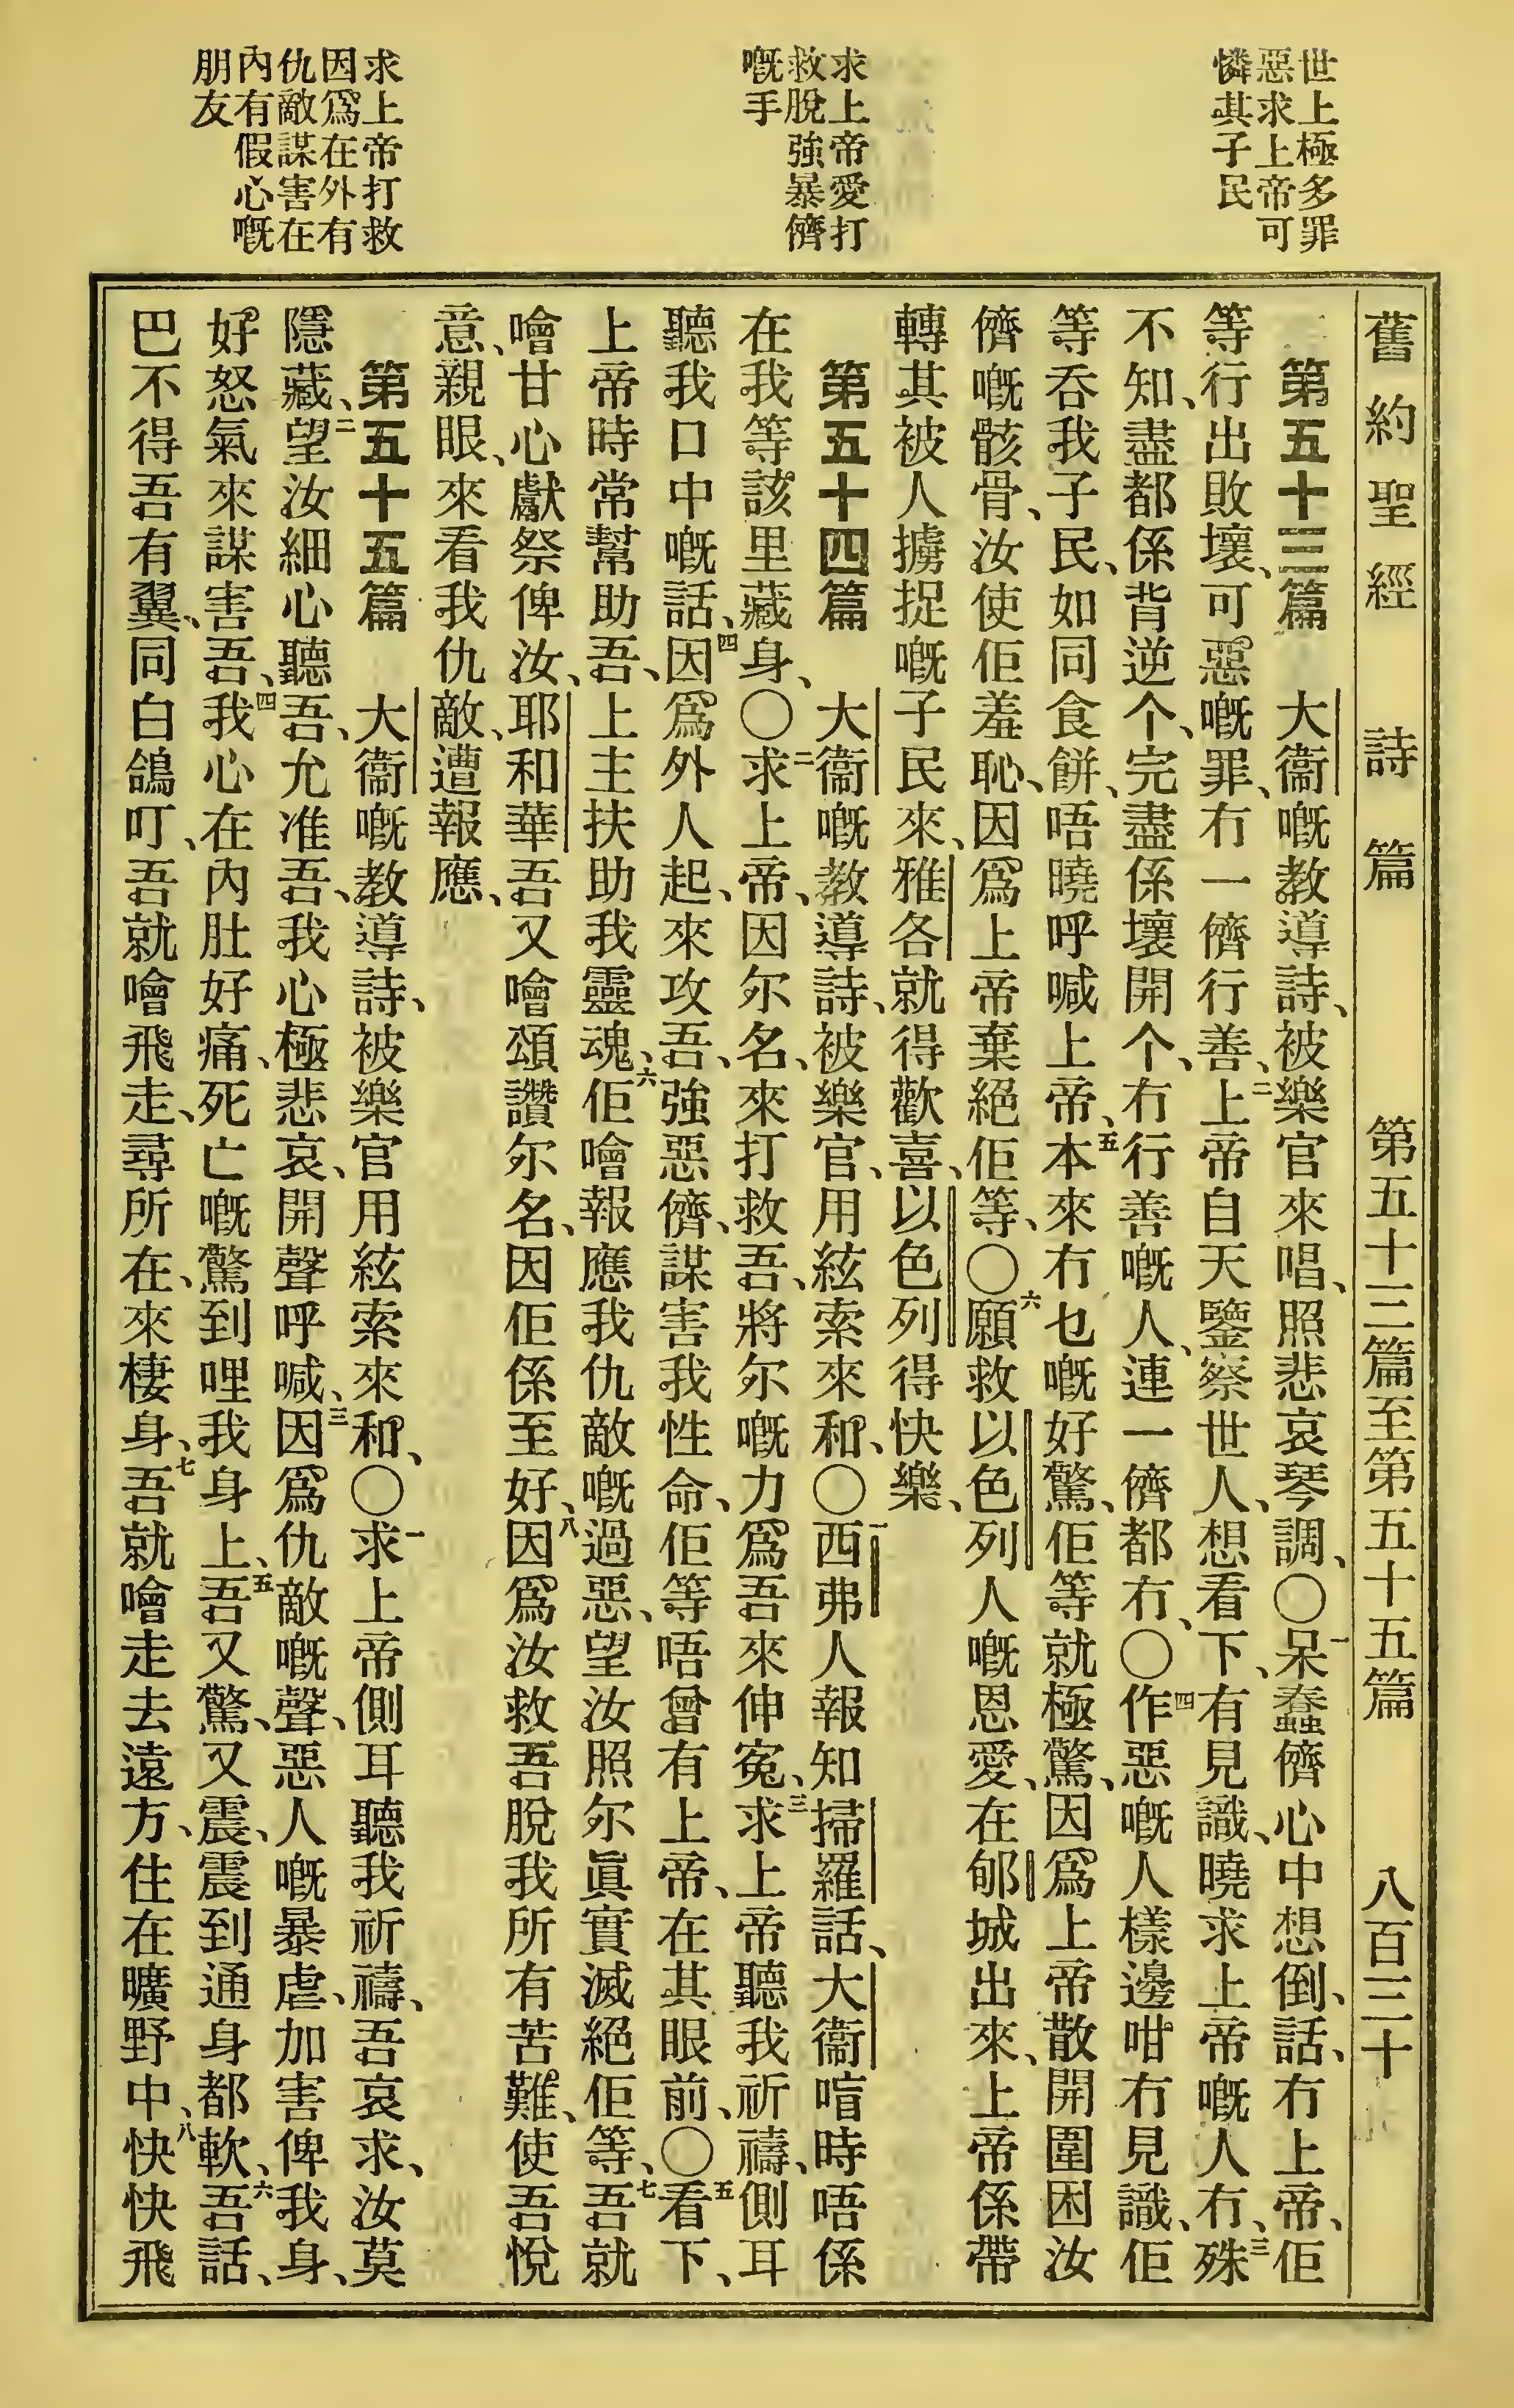 世上極多罪
惡求上帝可
憐其子民
求上帝愛打
救脫強暴儕
嘅手
求上帝打救
因爲在外有
仇敵謀害在
內有假心嘅
朋友
舊約聖經 詩篇 第五十三篇至第五十五篇 八百三十
第五十三篇 大衞嘅教導詩、被樂官來唱、照悲哀琴調、〇一呆蠢儕心中想倒、話、冇上帝、佢
等行出敗壞、可惡嘅罪、冇一儕行善、二上帝自天鑒察世人、想看下、有見識、曉求上帝嘅人冇、三殊
不知、盡都係背逆个、完盡係壞開个、冇行善嘅人、連一儕都冇、〇四作惡嘅人樣邊咁冇見識、佢
等呑我子民、如同食餅、唔曉呼喊上帝、五本來冇乜嘅好驚、佢等就極驚、因爲上帝散開圍困汝
儕嘅骸骨、汝使佢羞恥、因爲上帝棄絕佢等、〇六願救以色列人嘅恩愛、在郇城出來、上帝係帶
轉其被人擄捉嘅子民來、雅各就得歡喜、以色列得快樂、
第五十四篇 大衞嘅教導詩、被樂官、用絃索來和、〇一西弗人報知掃羅話、大衞㫔時唔係
在我等該里藏身、〇二求上帝、因尔名、來打救吾、將尔嘅力爲吾來伸寃、三求上帝聽我祈禱、側耳
聽我口中嘅話、四因爲外人起、來攻吾、強惡儕、謀害我性命、佢等唔曾有上帝、在其眼前、〇五看下、
上帝時常幫助吾、上主扶助我靈魂、六佢噲報應我仇敵嘅過惡、望汝照尔眞實滅絕佢等、七吾就
噲甘心獻祭俾汝、耶和華吾又噲頌讚尔名、因佢係至好、八因爲汝救吾脫我所有苦難、使吾悅
意、親眼、來看我仇敵、遭報應、
第五十五篇 大衞嘅教導詩、被樂官用絃索來和、〇一求上帝側耳聽我祈禱、吾哀求、汝莫
隱藏、二望汝細心聽吾、允准吾、我心極悲哀、開聲呼喊、三因爲仇敵嘅聲、惡人嘅暴虐、加害俾我身、
好怒氣來謀害吾、四我心在內肚好痛、死亡嘅驚到哩我身上、五吾又驚、又震、震到通身都軟、六吾話、
巴不得吾有翼、同白鴿叮、吾就噲飛走、尋所在、來棲身、七吾就噲走去遠方、住在曠野中、八快快飛